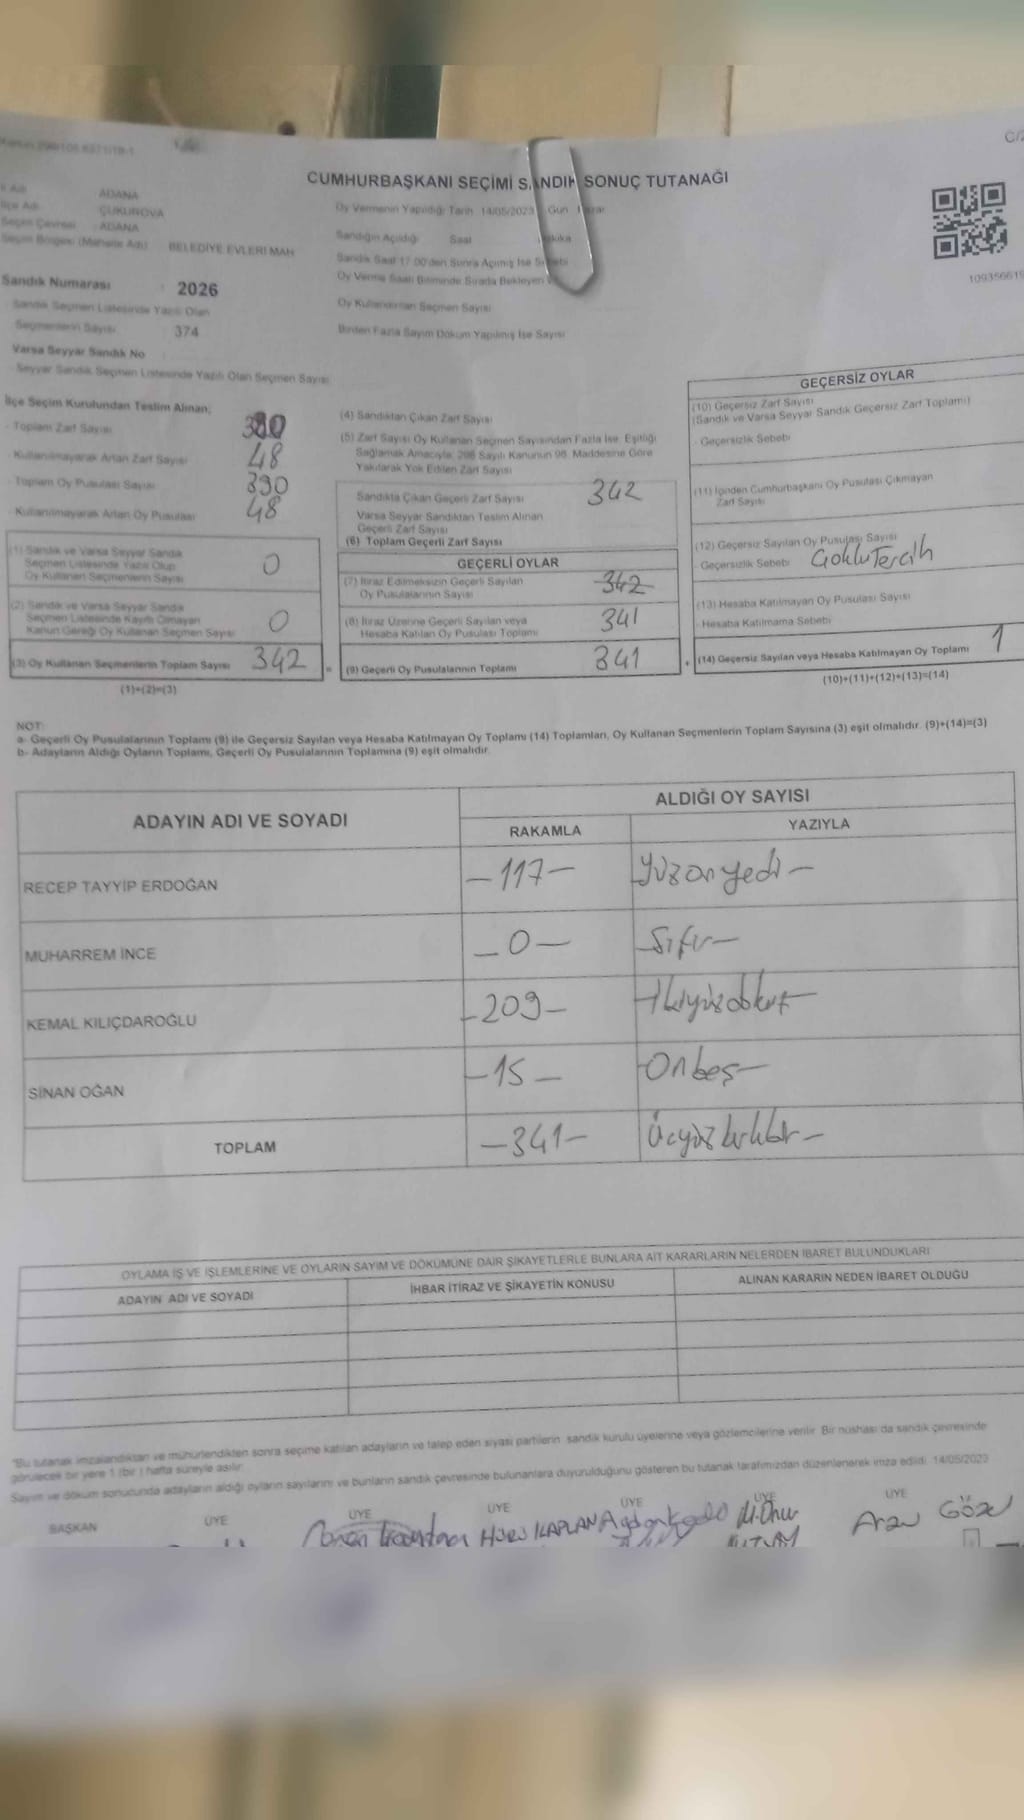 CUMHURBAŞKANI SEÇİMİ SANDIK SONUÇ TUTANAĞI
İl Adı ADANA
İlçe Adı ÇUKUROVA
Seçim Çevresi : ADANA
Seçim Bölgesi (Mahalle Adı) BELEDİYE EVLERİ MAH
Oy Vermenin Yapıldığı Tarih 14/05/2023 Gün Pazar
Sandığın Açıldığı Saat Dakika
Sandık Saat 17:00'den Sonra Açılmış İse Sebebi
Oy Verme Saati Bitiminde Sırada Bekleyen
Oy Kullandırılan Seçmen Sayısı
Birden Fazla Sayım Döküm Yapılmış İse Sayısı
Sandık Numarası : 2026
Sandık Seçmen Listesinde Yazılı Olan
Seçmenlerin Sayısı 374
Varsa Seyyar Sandık No
Seyyar Sandık Seçmen Listesinde Yazılı Olan Seçmen Sayısı
İlçe Seçim Kurulundan Teslim Alınan;
- Toplam Zarf Sayısı 390
- Kullanılmayarak Artan Zarf Sayısı 48
- Toplam Oy Pusulası Sayısı 390
- Kullanılmayarak Artan Oy Pusulası 48
(1) Sandık ve Varsa Seyyar Sandık
Seçmen Listesinde Yazılı Olup
Oy Kullanan Seçmenlerin Sayısı 0
(2) Sandık ve Varsa Seyyar Sandık
Seçmen Listesinde Kayıtlı Olmayan
Kanun Gereği Oy Kullanan Seçmen Sayısı 0
(3) Oy Kullanan Seçmenlerin Toplam Sayısı 342 =
(1)+(2)=(3)
(4) Sandıktan Çıkan Zarf Sayısı
(5) Zarf Sayısı Oy Kullanan Seçmen Sayısından Fazla İse, Eşitliği
Sağlamak Amacıyla, 298 Sayılı Kanunun 98. Maddesine Göre
Yakılarak Yok Edilen Zarf Sayısı
Sandıkta Çıkan Geçerli Zarf Sayısı 342
Varsa Seyyar Sandıktan Teslim Alınan
Geçerli Zarf Sayısı
(6) Toplam Geçerli Zarf Sayısı
GEÇERLİ OYLAR
(7) İtiraz Edilmeksizin Geçerli Sayılan
Oy Pusulalarının Sayısı 342
(8) İtiraz Üzerine Geçerli Sayılan veya
Hesaba Katılan Oy Pusulası Toplamı 341
(9) Geçerli Oy Pusulalarının Toplamı 341 +
GEÇERSİZ OYLAR
(10) Geçersiz Zarf Sayısı
(Sandık ve Varsa Seyyar Sandık Geçersiz Zarf Toplamı)
- Geçersizlik Sebebi
(11) İçinden Cumhurbaşkanı Oy Pusulası Çıkmayan
Zarf Sayısı
(12) Geçersiz Sayılan Oy Pusulası Sayısı
Geçersizlik Sebebi Çoklu Tercih
(13) Hesaba Katılmayan Oy Pusulası Sayısı
- Hesaba Katılmama Sebebi
(14) Geçersiz Sayılan veya Hesaba Katılmayan Oy Toplamı 1
(10)+(11)+(12)+(13)=(14)
NOT:
a- Geçerli Oy Pusulalarının Toplamı (9) ile Geçersiz Sayılan veya Hesaba Katılmayan Oy Toplamı (14) Toplamları, Oy Kullanan Seçmenlerin Toplam Sayısına (3) eşit olmalıdır. (9)+(14)=(3)
b- Adayların Aldığı Oyların Toplamı, Geçerli Oy Pusulalarının Toplamına (9) eşit olmalıdır.
ADAYIN ADI VE SOYADI ALDIĞI OY SAYISI
RAKAMLA YAZIYLA
RECEP TAYYİP ERDOĞAN -117- Yüzonyedi-
MUHARREM İNCE -0- Sıfır-
KEMAL KILIÇDAROĞLU -209- İkiyüzdokuz-
SİNAN OĞAN -15- Onbeş-
TOPLAM -341- Üçyüzkırkbir-
OYLAMA İŞ VE İŞLEMLERİNE VE OYLARIN SAYIM VE DÖKÜMÜNE DAİR ŞİKAYETLERLE BUNLARA AİT KARARLARIN NELERDEN İBARET BULUNDUKLARI
ADAYIN ADI VE SOYADI İHBAR İTİRAZ VE ŞİKAYETİN KONUSU ALINAN KARARIN NEDEN İBARET OLDUĞU
"Bu tutanak imzalandıktan ve mühürlendikten sonra seçime katılan adayların ve talep eden siyasi partilerin sandık kurulu üyelerine veya gözlemcilerine verilir. Bir nüshası da sandık çevresinde
görülecek bir yere 1 (bir) hafta süreyle asılır.
Sayım ve döküm sonucunda adayların aldığı oyların sayılarını ve bunların sandık çevresinde bulunanlara duyurulduğunu gösteren bu tutanak tarafımızdan düzenlenerek imza edildi. 14/05/2023
BAŞKAN ÜYE ÜYE ÜYE ÜYE ÜYE ÜYE
KAPLAN M.Onur Göze